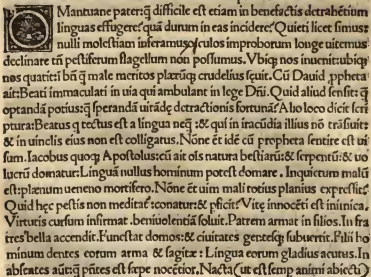 O Mantuane pater: q̃ difficile est etiam in benefactis detrahẽtium
linguas effugere? quã durum in eas incidere? Quieti licet simus:
nulli molestiam inferamus, oculos improborum longe uitemus
declinare tñ pestiferum flagellum non possumus. Vbiq; nos inuenit: ubiq;
nos quatit: & bñ q̃ male meritos plærũq; crudelius sęuit. Cũ Dauid, ppheta
ait: Beati immaculati in uia qui ambulant in lege Dñi. Quid aliud sensit: q̃
optandã potius: q̃ sperandã uitãdę detractionis fortunã? Alio loco dicit scri
ptura: Beatus q tectus est a lingua neq;: & qui in iracũdia illius nõ trãsiuit:
& in uinclis eius non est colligatus. Nõne ẽt idẽ cũ propheta sentire est ui
sum. Iacobus quoq; Apostolus: cũ aít oĩs natura bestiarũ: & serpentũ: & uo
lucrũ domatur: Linguã nullus hominum potest domare. Inquietum malũ
est: plænum ueneno mortifero. Nõne ẽt uim mali totius planius expressit?
Quid hęc pestis non meditat̃: conatur: & pficit? Vitę innocẽti est inimica,
Virtutis cursum infirmat. beniuolentiã soluit. Patrem armat in filios. In fra
tres bella accendit. Funestat domos: & ciuitates gentesq; subuertit. Filii ho
minum dentes eorum arma & sagitæ: Lingua eorum gladius acutus. In
absentes aũt: q̃ pñtes est sæpe nocẽtior, Nacta (ut est semp animi abiecti)